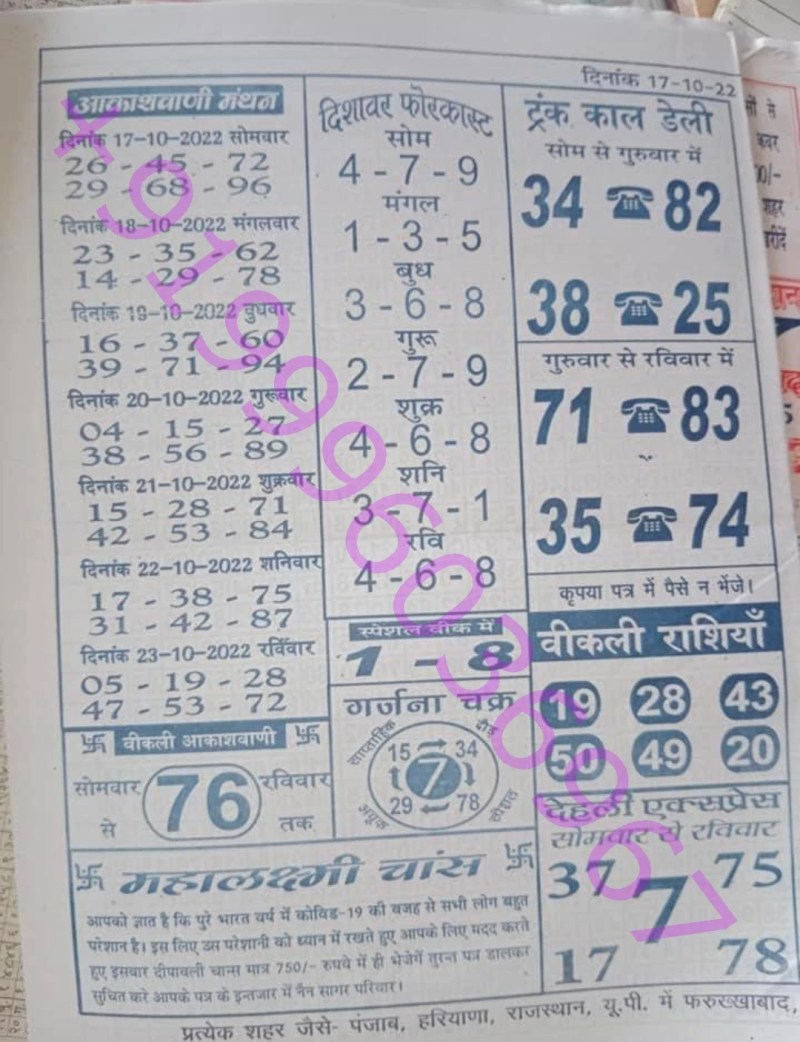 दिनांक 17-10-22
आकाशवाणी मंथन
दिनांक 17-10-2022 सोमवार
26 - 45 - 72
29 - 68 - 96
दिनांक 18-10-2022 मंगलवार
23 - 35 - 62
14 - 29 - 78
दिनांक 19-10-2022 बुधवार
16 - 37 - 60
39 - 71 - 94
दिनांक 20-10-2022 गुरूवार
04 - 15 - 27
38 - 56 - 89
दिनांक 21-10-2022 शुक्रवार
15 - 28 - 71
42 - 53 - 84
दिनांक 22-10-2022 शनिवार
17 - 38 - 75
31 - 42 - 87
दिनांक 23-10-2022 रविवार
05 - 19 - 28
47 - 53 - 72
वीकली आकाशवाणी
सोमवार 76 रविवार
से तक
दिशावर फोरकास्ट
सोम
4 - 7 - 9
मंगल
1 - 3 - 5
बुध
3 - 6 - 8
गुरू
2 - 7 - 9
शुक्र
4 - 6 - 8
शनि
3 - 7 - 1
रवि
4 - 6 - 8
स्पेशल वीक में
1 - 8
गर्जना चक्र
साप्ताहिक दौड़
15 34
7
29 78
अचूक स्पेशल
ट्रंक काल डेली
सोम से गुरुवार में
34 ☎ 82
38 ☎ 25
गुरुवार से रविवार में
71 ☎ 83
35 ☎ 74
कृपया पत्र में पैसे न भेंजे।
वीकली राशियाँ
19 28 43
50 49 20
देहली एक्सप्रेस
सोमवार से रविवार
37 75
7
17 78
卐 महालक्ष्मी चांस 卐
आपको ज्ञात है कि पुरे भारत वर्ष में कोविड-19 की वजह से सभी लोग बहुत
परेशान है। इस लिए उस परेशानी को ध्यान में रखते हुए आपके लिए मदद करते
हुए इसवार दीपावली चान्स मात्र 750/- रुपये में ही भेजेगें तुरन्त पत्र डालकर
सुचित करे आपके पत्र के इन्तजार में नैन सागर परिवार।
प्रत्येक शहर जैसे- पंजाब, हरियाणा, राजस्थान, यू.पी. में फरुख्खाबाद,
+919996036967